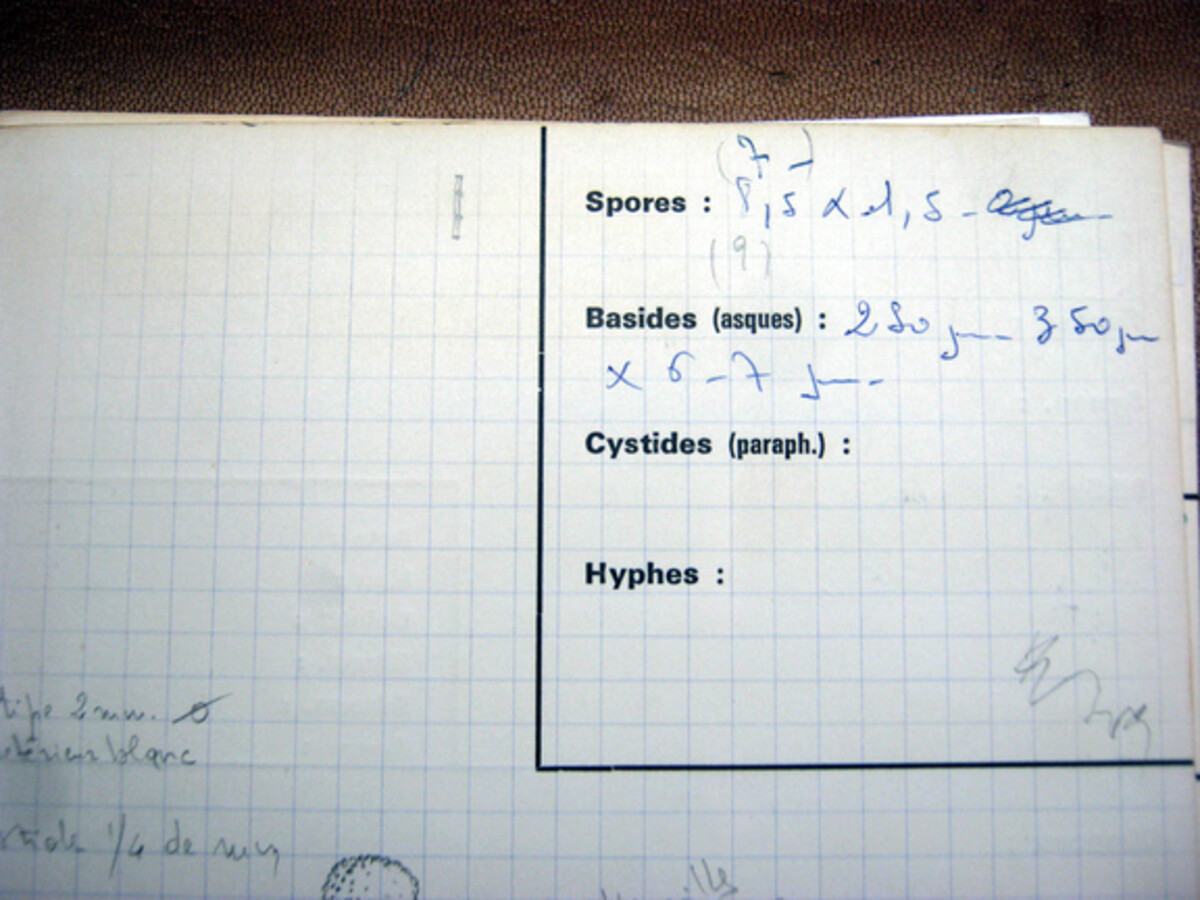 (7 -)
Spores : 8,5 x 1,5 -
(9)
Basides (asques) : 250 µm - 350 µm
x 6 - 7 µm -
Cystides (paraph.) :
Hyphes :
tipe 2 mm. ø
térieur blanc
1/4 de mm